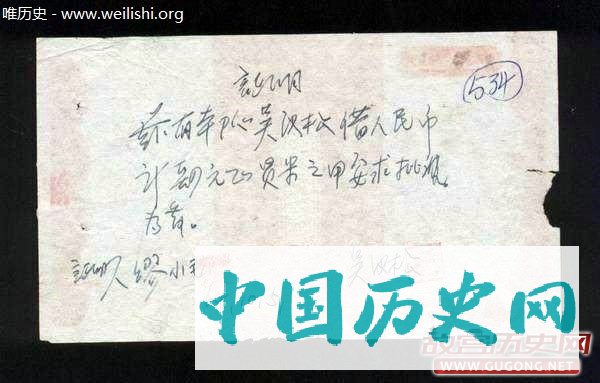 唯历史 - www.weilishi.org
534
证明
兹有本队吴汉松借人民币
计 元正买米之用要求批准
为荷。
证明人 缪小
吴汉松
中国历史网
故宫历史网
WWW.GUGONG.NET